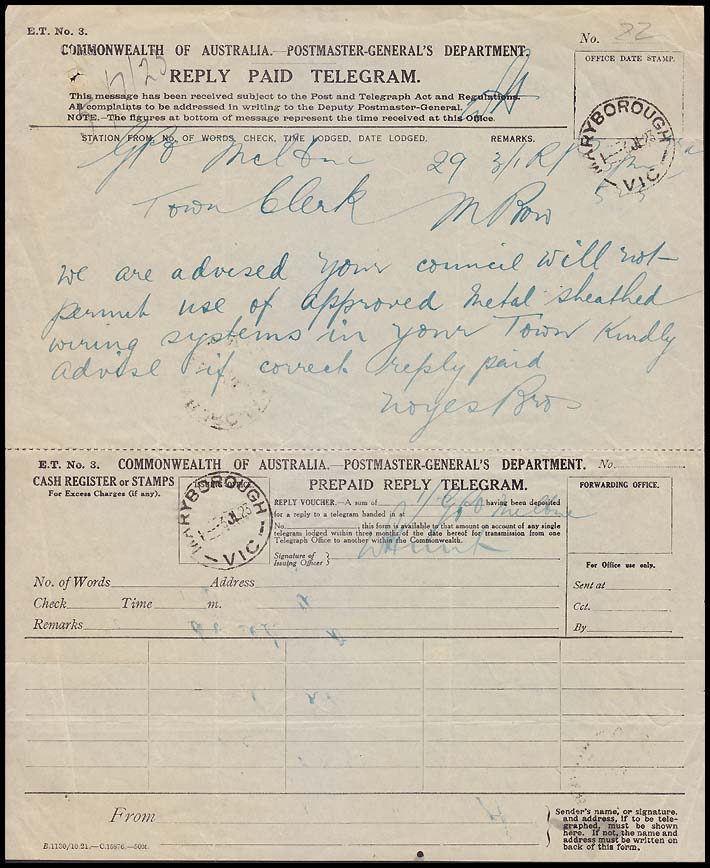 E.T. No. 3.
No. 22
COMMONWEALTH OF AUSTRALIA.—POSTMASTER-GENERAL'S DEPARTMENT.
REPLY PAID TELEGRAM.
OFFICE DATE STAMP.
This message has been received subject to the Post and Telegraph Act and Regulations.
All complaints to be addressed in writing to the Deputy Postmaster-General.
NOTE.—The figures at bottom of message represent the time received at this Office.
MARYBOROUGH
3 JL 23
VIC
STATION FROM, NO. OF WORDS, CHECK, TIME LODGED, DATE LODGED. REMARKS.
GPO Melbne 29 3/1 RP
Town Clerk M Boro
We are advised your council will not
permit use of approved Metal sheathed
wiring systems in your Town Kindly
Advise if correct reply paid
Noyes Bros
E.T. No. 3. COMMONWEALTH OF AUSTRALIA.—POSTMASTER-GENERAL'S DEPARTMENT. No.
CASH REGISTER or STAMPS
For Excess Charges (if any).
MARYBOROUGH
3 JL 23
VIC
PREPAID REPLY TELEGRAM.
FORWARDING OFFICE.
REPLY VOUCHER.—A sum of 1/- having been deposited
for a reply to a telegram handed in at GPO Melbne
No. , this form is available to that amount on account of any single
telegram lodged within three months of the date hereof for transmission from one
Telegraph Office to another within the Commonwealth.
Signature of
Issuing Officer }
For Office use only.
No. of Words Address
Sent at
Check Time m.
Cct.
Remarks
By
From
Sender's name, or signature,
and address, if to be tele-
graphed, must be shown
here. If not, the name and
address must be written on
back of this form.
B.1130/10.21.—C.15876.—50M.